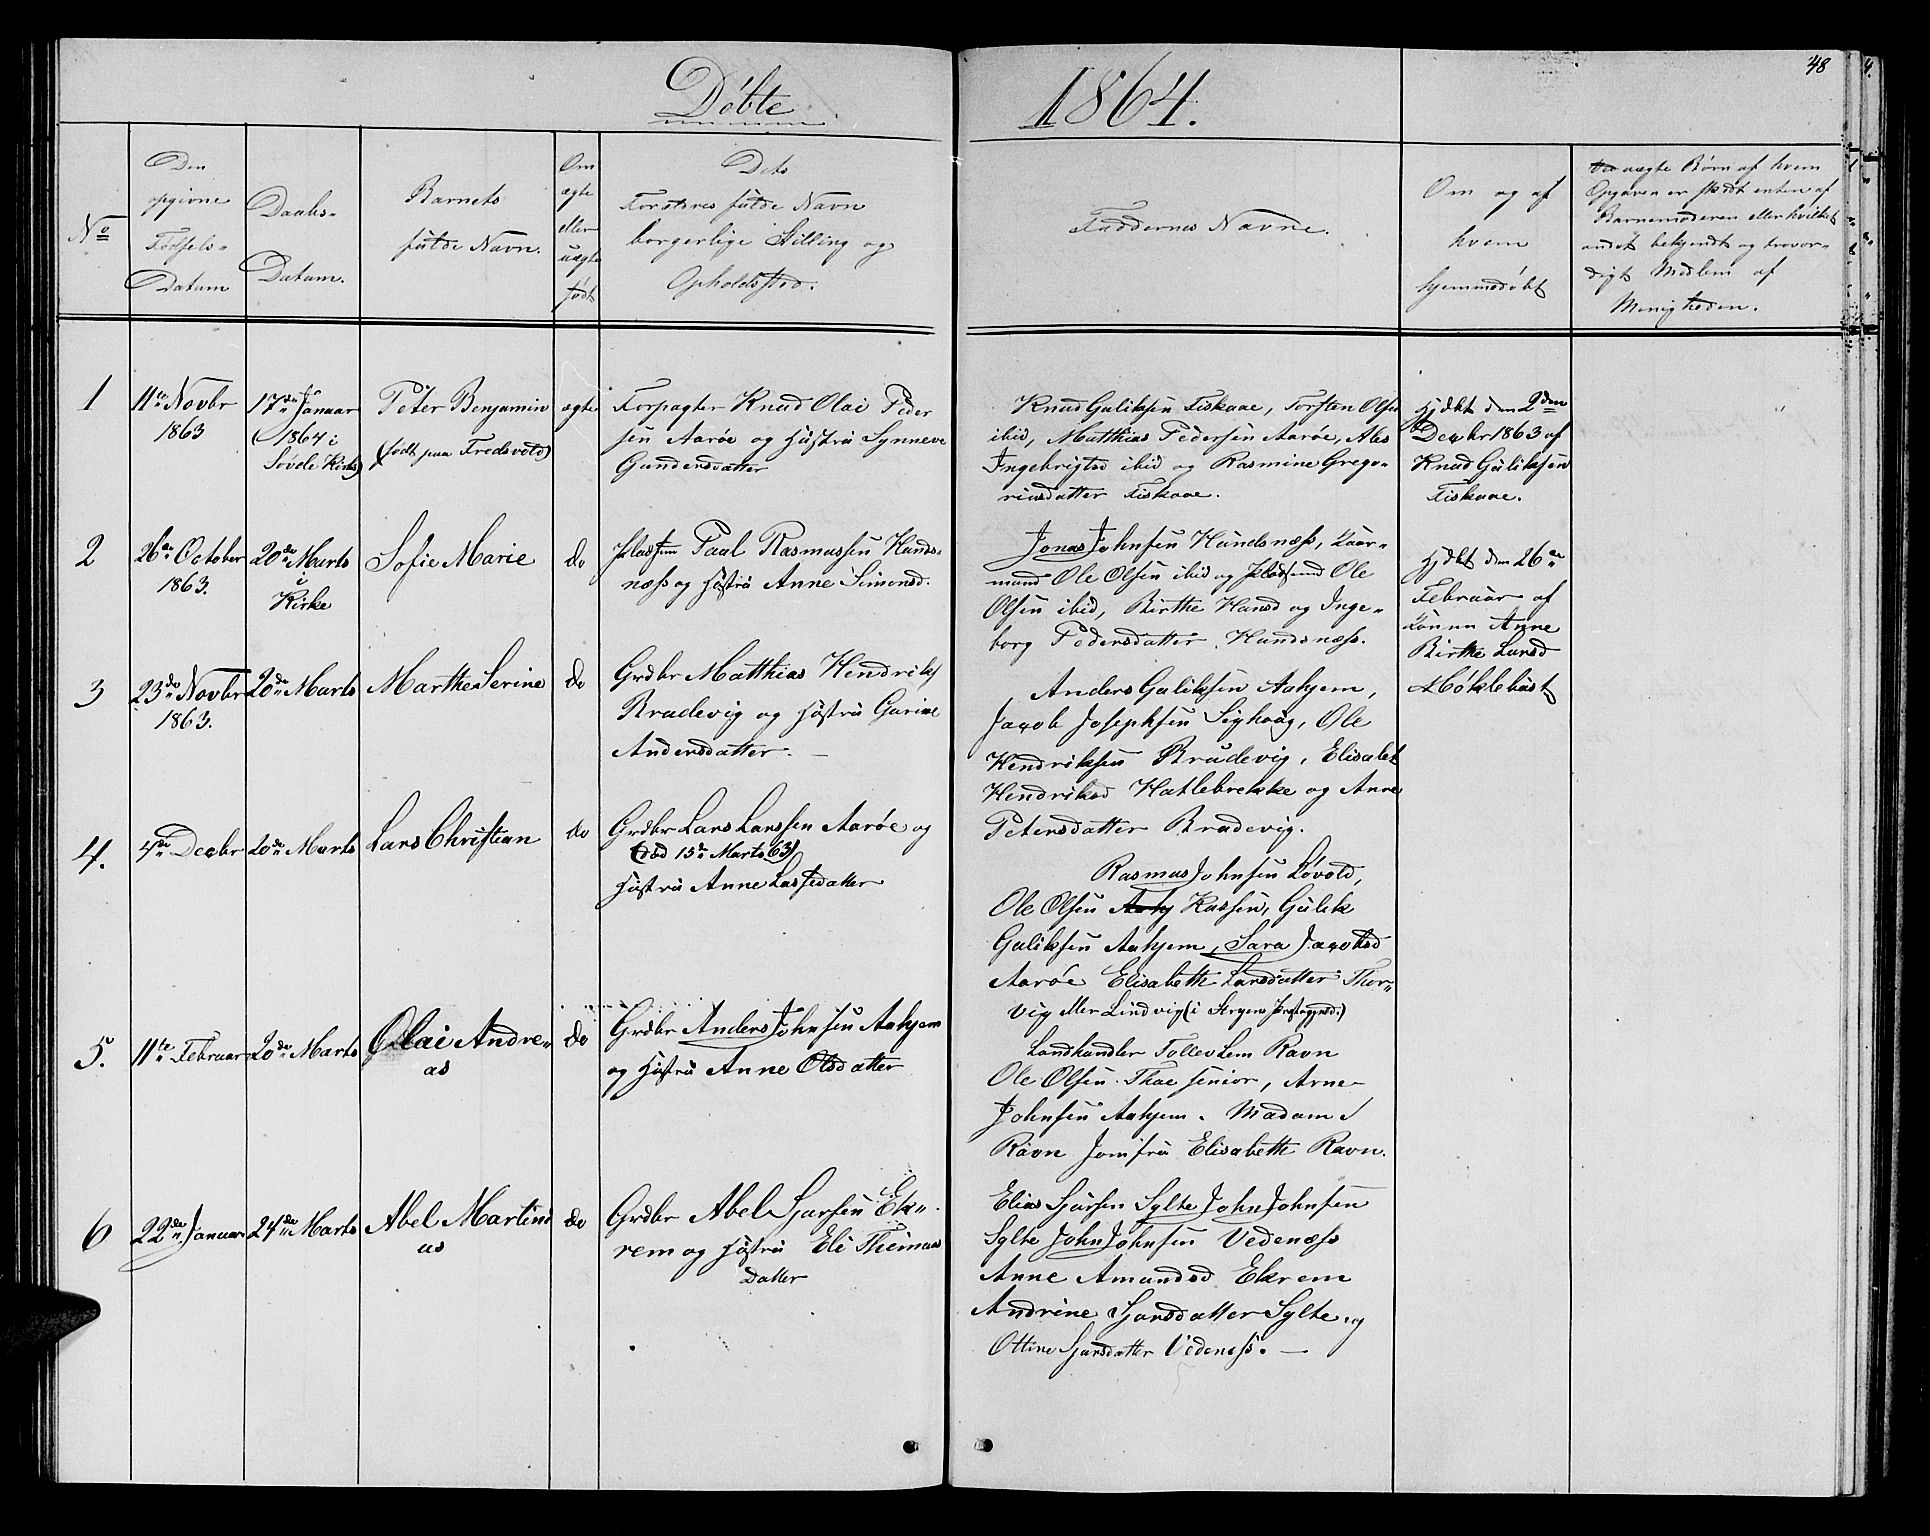 Døbte
1864.
48
No
Den
opgivne
Fødsels-
Datum
Daabs-
Datum.
Barnets
fulde Navn.
Om
ægte
eller
uægte
født
Dets
Forældres fulde Navn
borgerlige Stilling og
Opholdsted.
Faddernes Navne.
Om og af
hvem
hjemmedøbt
uægte Børn af hvem
Opgaven er skedt enten af
Barnemoderen eller hvilket
andet bekjendt og trovær-
digt Medlem af
Menigheden.
1
11te Novbr
1863
17de Januar
(1864 i
Søvde Kirke)
Peter Benjamin
(født paa Fredsvold)
ægte
Forpagter Knud Olai Peder
sen Aarøe og Hustru Synneve
Gundersdatter
Knud Guliksen Fiskaae, Torsten Olsen
ibid, Matthias Pedersen Aarøe, Abs
Ingebrigtsd ibid og Rasmine Grego-
riusdatter Fiskaae.
Hjdbt den 2den
Decbr 1863 af
Knud Guliksen
Fiskaae.
2
26de October
1863.
20de Marts
i
Kirke
Sofie Marie
do
Pladsm Paul Rasmussen Hunds-
næss og Hustru Anne Simonsd.
Jonas Johnsen Hundsnæss, Kaar-
mand Ole Olsen ibid og Pladsmd Ole
Olsen ibid, Birthe Hansd og Inge-
borg Pedersdatter Hundsnæss.
Hjdbt den 26de
Februar af
Konen Anne
Birthe Larsd
Møklebust
3
23de Novbr
1863.
20de Marts
Marthe Serine
do
Grdbr Matthias Hendriks
Brudevig og Hustru Gurine
Andersdatter. —
Anders Guliksen Aahjem,
Jacob Josephsen Sighoug, Ole
Hendriksen Brudevig, Elisabet
Hendriksd Hatlebrekke og Anne
Petersdatter Brudevig.
4.
4de Decbr
20de Marts
Lars Christian
do
Grdbr Lars Larssen Aarøe og
(død 15de Marts 63)
Hustru Anne Lassedatter
Rasmus Johnsen Løvold,
Ole Olsen Aahj Kassen, Gulik
Guliksen Aahjem, Sara Jacobsd
Aarøe Elisabeth Larsdatter Thor-
vig eller Lindvig (i Stryens Præstegjeld.)
5.
11te Februar
20de Marts
Olai Andre-
as
do
Grdbr Anders Johnsen Aahjem
og Hustru Anne Olsdatter
Landhandler Tollev Lem Ravn
Ole Olsen Thue senior, Arne
Johnsen Aahjem. Madam
Ravn Jomfru Elisabeth Ravn.
6
22de Januar
24de Marts
Abel Martin
us
do
Grdbr Abel Sjursen Ek-
rem og Hustru Eli Thomas
datter
Elias Sjursen Sylte John Johnsen
Sylte John Johnsen Vedenæss
Anne Amundsd Ekrem
Andrine Sjursdatter Sylte og
Ottine Sjursdatter Vedenæss. —